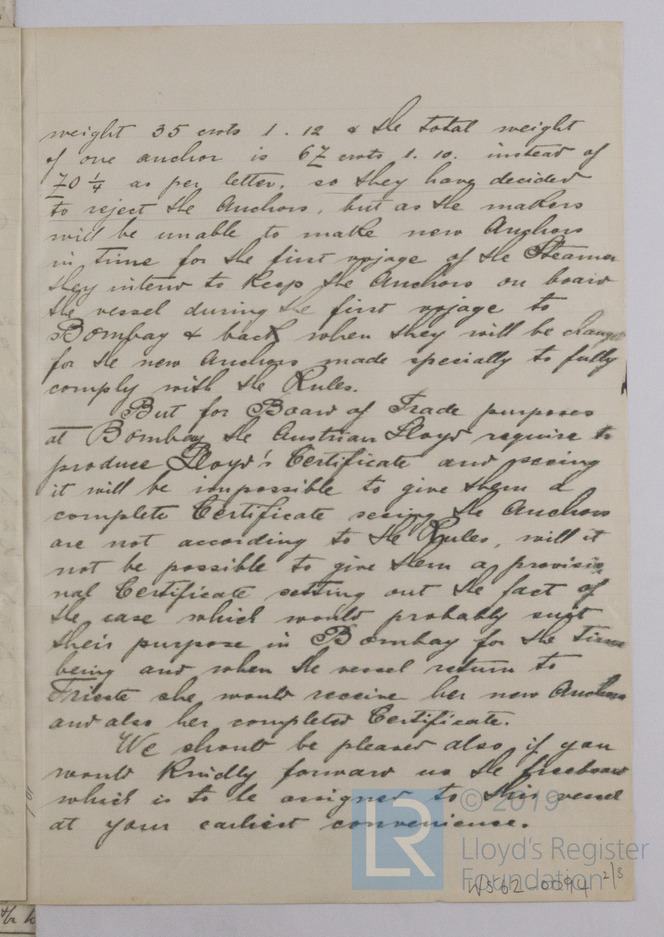 weight 35 cwts 1. 12 & the total weight
of one anchor is 67 cwts 1. 10. instead of
70 1/4 as per letter, so they have decided
to reject the Anchors, but as the makers
will be unable to make new Anchors
in time for the first voyage of the Steamer
they intend to keep the Anchors on board
the vessel during the first voyage to
Bombay & back when they will be changed
for the new Anchors made specially to fully
comply with the Rules.
But for Board of Trade purposes
at Bombay the Austrian Lloyd require to
produce Lloyd's Certificate and seeing
it will be impossible to give them a
complete Certificate seeing the Anchors
are not according to the Rules, will it
not be possible to give them a provisio
nal Certificate setting out the fact of
the case which would probably suit
their purpose in Bombay for the time
being and when the vessel return to
Trieste she would receive her new Anchors
and also her completed Certificate.
We should be pleased also if you
would kindly forward us the freeboard
which is to be assigned to this vessel
at your earliest convenience.
LR © 2019
Lloyd's Register
Foundation
WS02-0094 2/3